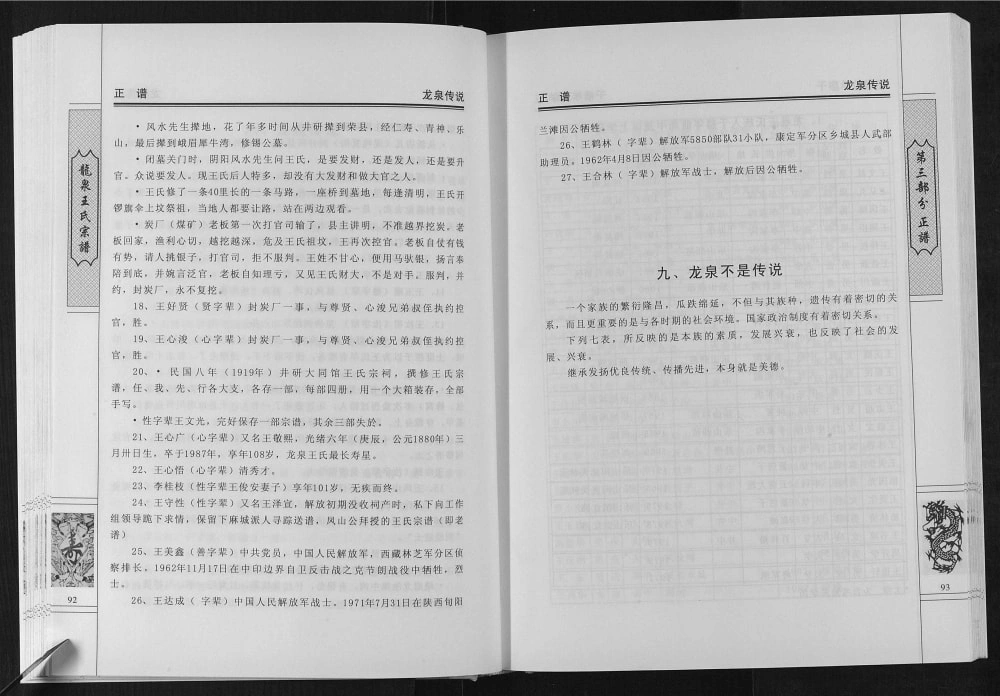 正　谱　　龙泉传说
龍泉王氏宗譜
·风水先生撵地，花了年多时间从井研撵到荣县，经仁寿、青神、乐
山，最后撵到峨眉犀牛湾，修锡公墓。
·闭墓关门时，阴阳风水先生问王氏，是要发财，还是发人，还是要升
官。众说要发人。现王氏后人特多，却没有大发财和做大官之人。
·王氏修了一条40里长的一条马路，一座桥到墓地，每逢清明，王氏开
锣旗伞上坟祭祖，当地人都要让路，站在两边观看。
·炭厂（煤矿）老板第一次打官司输了，县主讲明，不准越界挖炭。老
板回家，渔利心切，越挖越深，危及王氏祖坟，王再次控官。老板自仗有钱
有势，请人挑银子，打官司，拒不服判。王姓不甘心，便用马驮银，扬言奉
陪到底，并婉言泛官，老板自知理亏，又见王氏财大，不是对手。服判，并
约，封炭厂，永不复挖。
18、王好贤（贤字辈）封炭厂一事，与尊贤、心浚兄弟叔侄执约控
官，胜。
19、王心浚（心字辈）封炭厂一事，与尊贤、心浚兄弟叔侄执约控
官，胜。
20、·民国八年（1919年）井研大同馆王氏宗祠，撰修王氏宗
谱，任、我、先、行各大支，各存一部，每部四册，用一个大箱装存，全部
手写。
·性字辈王文光，完好保存一部宗谱，其余三部失於。
21、王心广（心字辈）又名王敬熙，光绪六年（庚辰，公元1880年）三
月卅日生，卒于1987年，享年108岁，龙泉王氏最长寿星。
22、王心悟（心字辈）清秀才。
23、李桂枝（性字辈王俊安妻子）享年101岁，无疾而终。
24、王守性（性字辈）又名王泽宣，解放初期没收祠产时，私下向工作
组领导跪下求情，保留下麻城派人寻踪送谱，凤山公拜授的王氏宗谱（即老
谱）
25、王美鑫（善字辈）中共党员，中国人民解放军，西藏林芝军分区侦
察排长。1962年11月17日在中印边界自卫反击战之克节朗战役中牺牲，烈
士。
26、王达成（ 字辈）中国人民解放军战士。1971年7月31日在陕西旬阳
92
正　谱　　龙泉传说
第三部分 正譜
兰滩因公牺牲。
26、王鹤林（ 字辈）解放军5850部队31小队，康定军分区乡城县人武部
助理员。1962年4月8日因公牺牲。
27、王合林（ 字辈）解放军战士，解放后因公牺牲。
九、龙泉不是传说
一个家族的繁衍隆昌，瓜跌绵延，不但与其族种，遗传有着密切的关
系，而且更重要的是与各时期的社会环境。国家政治制度有着密切关系。
下列七表，所反映的是本族的素质，发展兴衰，也反映了社会的发
展、兴衰。
继承发扬优良传统、传播先进，本身就是美德。
93